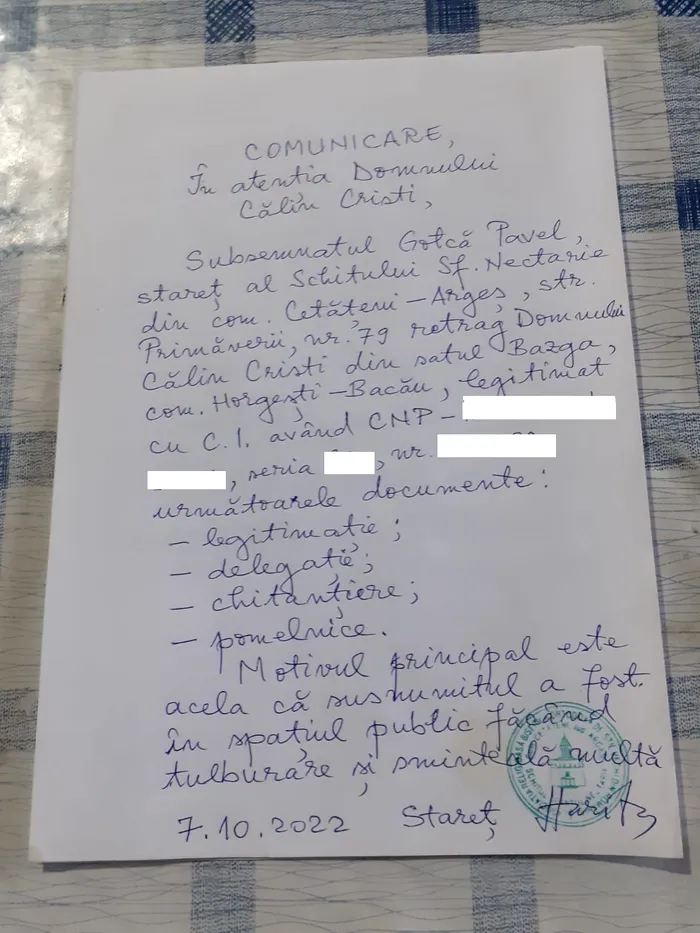 COMUNICARE,
În atenția Domnului
Călin Cristi,
Subsemnatul Gotcă Pavel,
stareț al Schitului Sf. Nectarie
din com. Cetățeni – Argeș, str.
Primăverii, nr. 79 retrag Domnului
Călin Cristi din satul Bazga,
com. Horgești – Bacău, legitimat
cu C.I. având CNP –
, seria , nr.
următoarele documente:
– legitimație;
– delegație;
– chitanțiere;
– pomelnice.
Motivul principal este
acela că susnumitul a fost
în spațiul public făcând
tulburare și sminteală multă
7.10.2022 Stareț